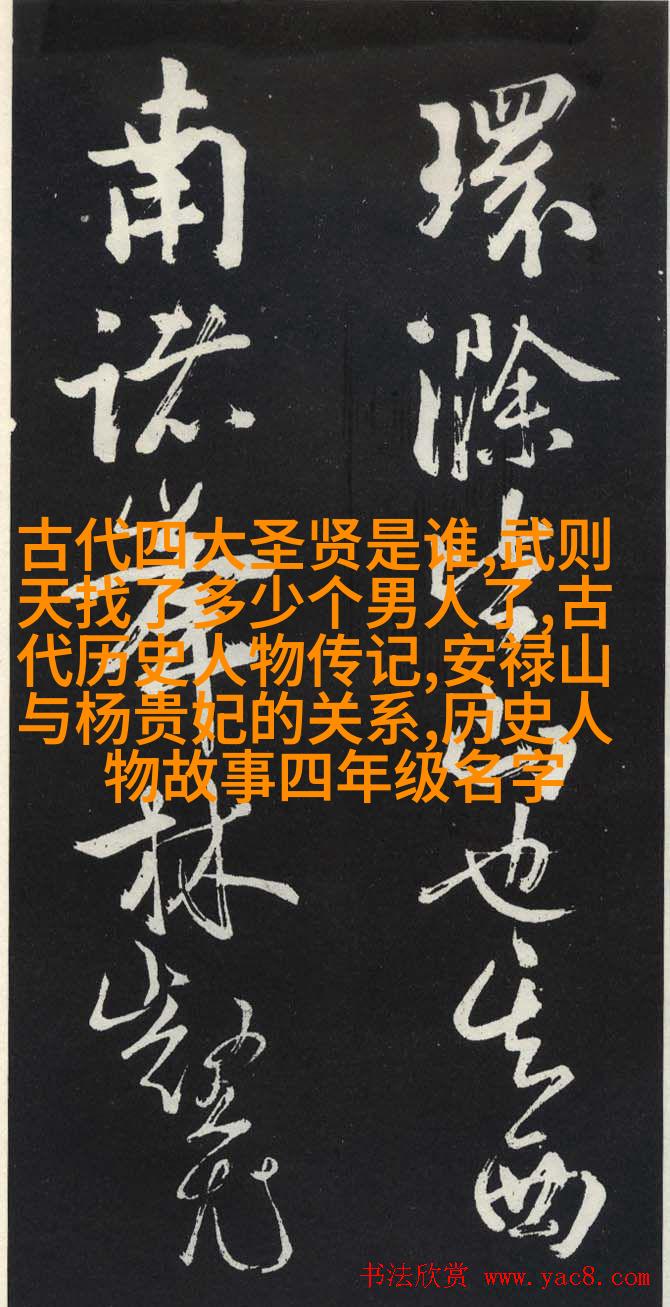 環滁皆山也其西
南諸峯林壑尤
古代四大圣贤是谁,武则
天找了多少个男人了,古
代历史人物传记,安禄山
与杨贵妃的关系,历史人
物故事四年级名字
书法欣赏 www.yac8.com